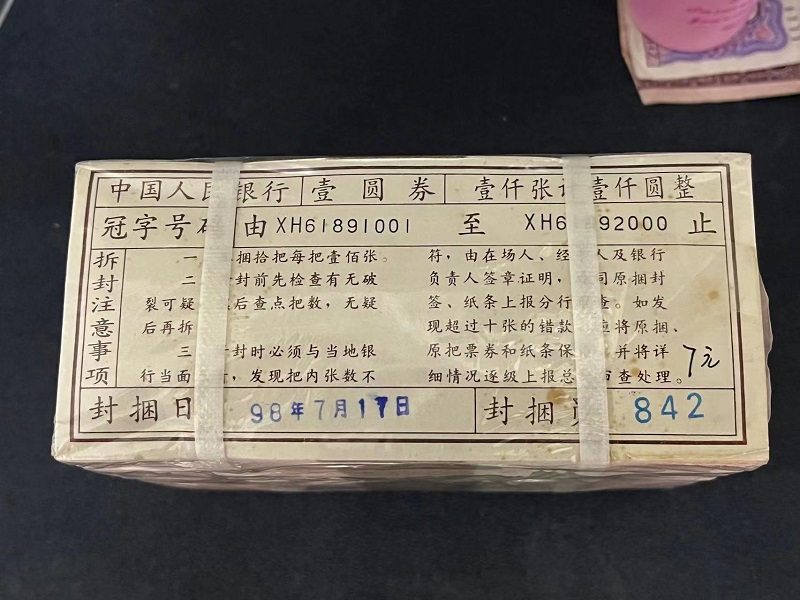 中国人民银行 壹圆券 壹仟张 壹仟圆整
冠字号 由 XH61891001 至 XH6 92000 止
拆封注意事项
一 捆拾把每把壹佰张。
二 封前先检查有无破
裂可疑 后查点把数，无疑
后再拆
三 封时必须与当地银
行当面 ，发现把内张数不
符，由在场人、经 人及银行
负责人签章证明， 同原捆封
签、纸条上报分行 查。如发
现超过十张的错款 应将原捆、
原把票券和纸条保 并将详
细情况逐级上报总 审查处理。
7元
封捆日 98年7月17日 封捆员 842